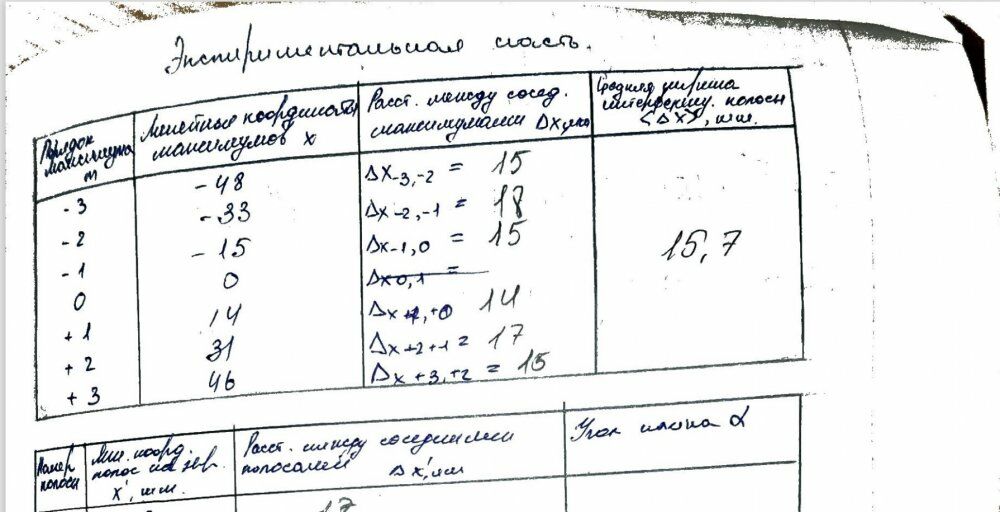 Экспериментальная часть.
Порядок максимума m
Линейные координаты максимумов x
Расст. между сосед. максимумами Δx, мм
Средняя ширина интерференц. полосы <Δx>, мм.
-3 -48 Δx-3,-2 = 15
-2 -33 Δx-2,-1 = 18
-1 -15 Δx-1,0 = 15 15,7
0 0 Δx0,1 =
+1 14 Δx+1,+0 14
+2 31 Δx+2+1 = 17
+3 46 Δx+3,+2 = 15
Номер полосы
Лин. коорд. полос на экр. x', мм.
Расст. между соседними полосами Δx', мм
Угол клина α
17